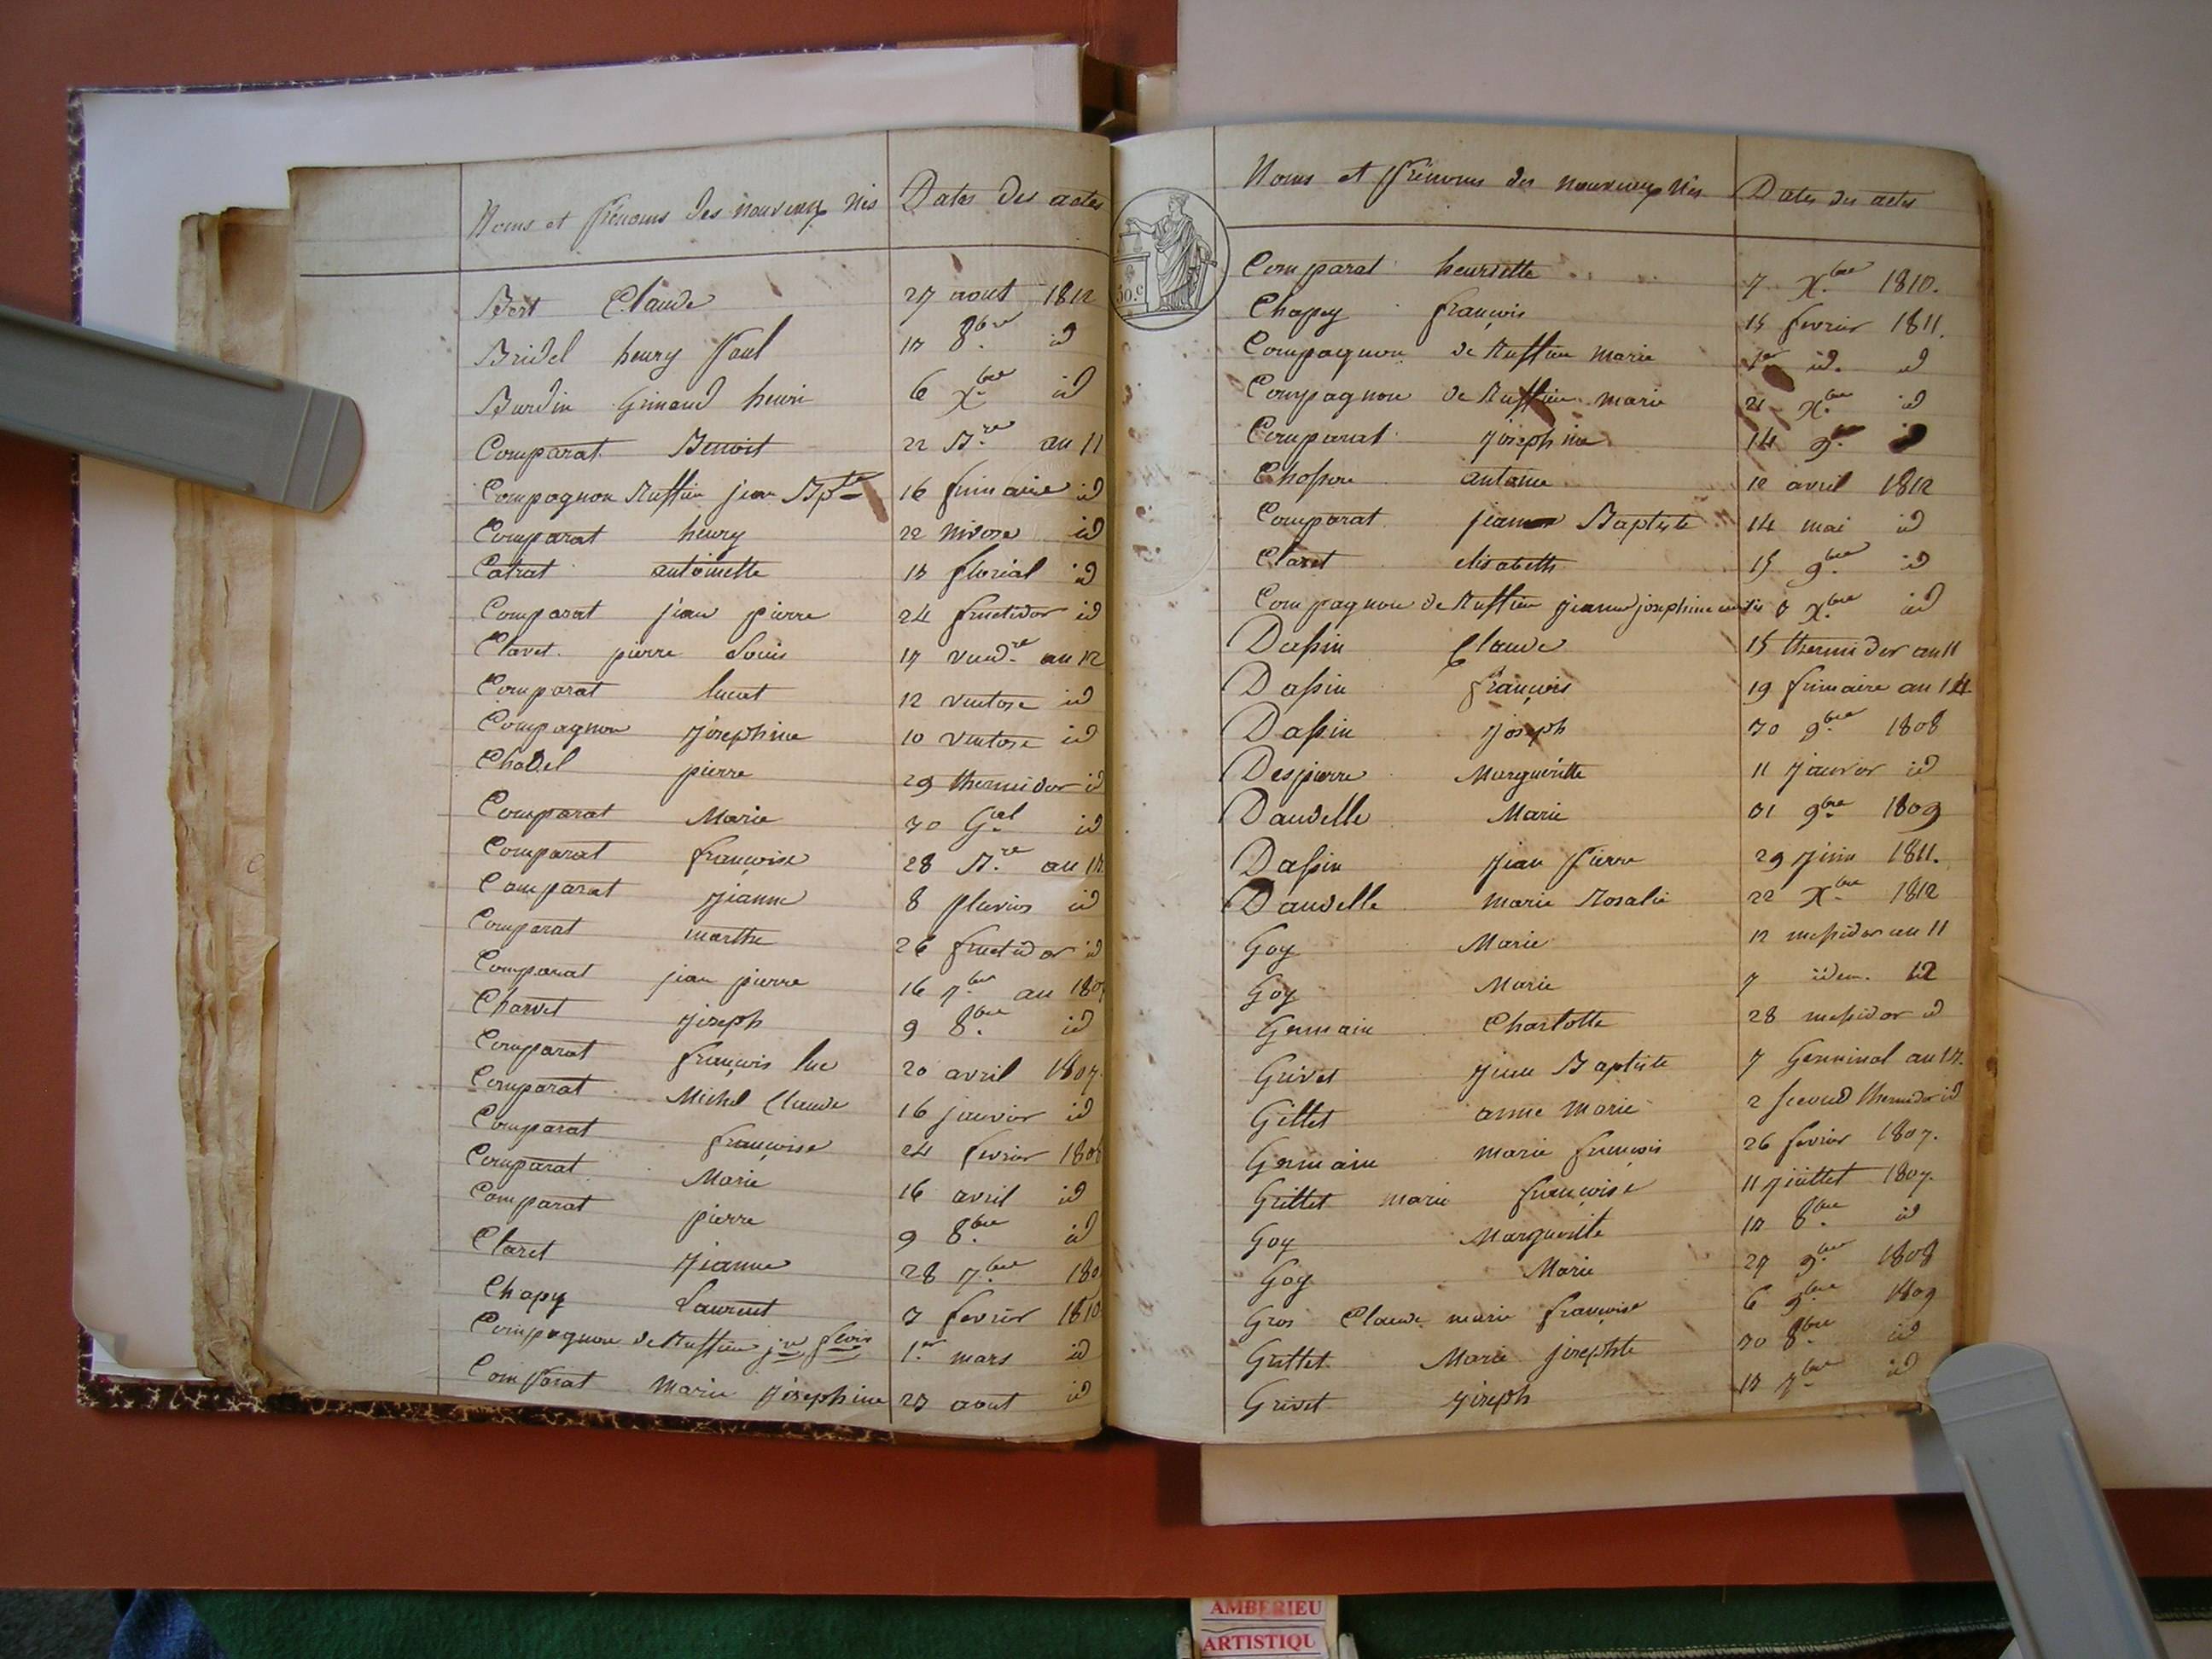 Noms et Prénoms des nouveaux Nés Dates des actes
Bert Claude 27 aout 1812
Bridel henry Paul 8.bre id
Burdin Grinand henri 6 X.bre id
Comparat Benoit 22 B.re an 11
Compagnon Ruffieu jean Bpte 16 frimaire id
Comparat henry 22 nivose id
Catrat antoinette floréal id
Comparat jean pierre 24 fructidor id
Claret pierre Louis 17 vend.re an 12
Comparat lucat 12 ventose id
Compagnon josephine 10 ventose id
Chadel pierre 29 thermidor id
Comparat Marie 30 G.al id
Comparat françoise 28 B.re an
Comparat jeanne 8 pluvios id
Comparat marthe 26 fructidor id
Comparat jean pierre 16 7.bre an
Charvet joseph 9 8.bre id
Comparat françois luc 20 avril 1807.
Comparat Michel Claude 16 janvier id
Comparat françoise 24 fevrier 1808
Comparat Marie 16 avril id
Comparat pierre 9 8.bre id
Claret jeanne 28 7.bre 180
Chapy Laurent 3 fevrier 1810
Compagnon de Ruffieu jn fcois 1.er mars id
Comparat Marie josephine 23 aout id
Noms et Prénoms des nouveaux Nés Dates des actes
Comparat henriette 7 X.bre 1810.
Chapey françois 15 fevrier 1811.
Compagnon de Ruffieu marie 1er id. id
Compagnon de Ruffieu marie 21 X.bre id
Comparat josephine 14 9. id
Chossere antoine 12 avril 1812
Comparat jean Baptiste 14 mai id
Claret elisabeth 15 9.bre id
Compagnon de Ruffieu jeanne josephine X.bre id
Dassin Claude 15 thermidor an 11
Dassin françois 19 frimaire an 14
Dassin joseph 30 9.bre 1808
Despierre Margueritte 11 janvier id
Daudelle Marie 9.bre 1809
Dassin jean Pierre 29 juin 1811.
Daudelle marie Rosalie 22 X.bre 1812
Goy Marie 12 messidor an 11
Goy Marie 7 idem. 12
Germain Charlotte 28 messidor id
Grivet jean Baptiste 7 Germinal an 13.
Gillet anne Marie 2 second thermidor id
Germain marie françois 26 fevrier 1807.
Grillet marie françoise 11 juillet 1807.
Goy Marguerite 8.bre id
Goy Marie 27 9.bre 1808
Gros Claude marie françoise 6 9.bre 1809
Grillet Marie josephte 30 8.bre id
Grivet joseph 7.bre id
50.c
AMBERIEU
ARTISTIQU